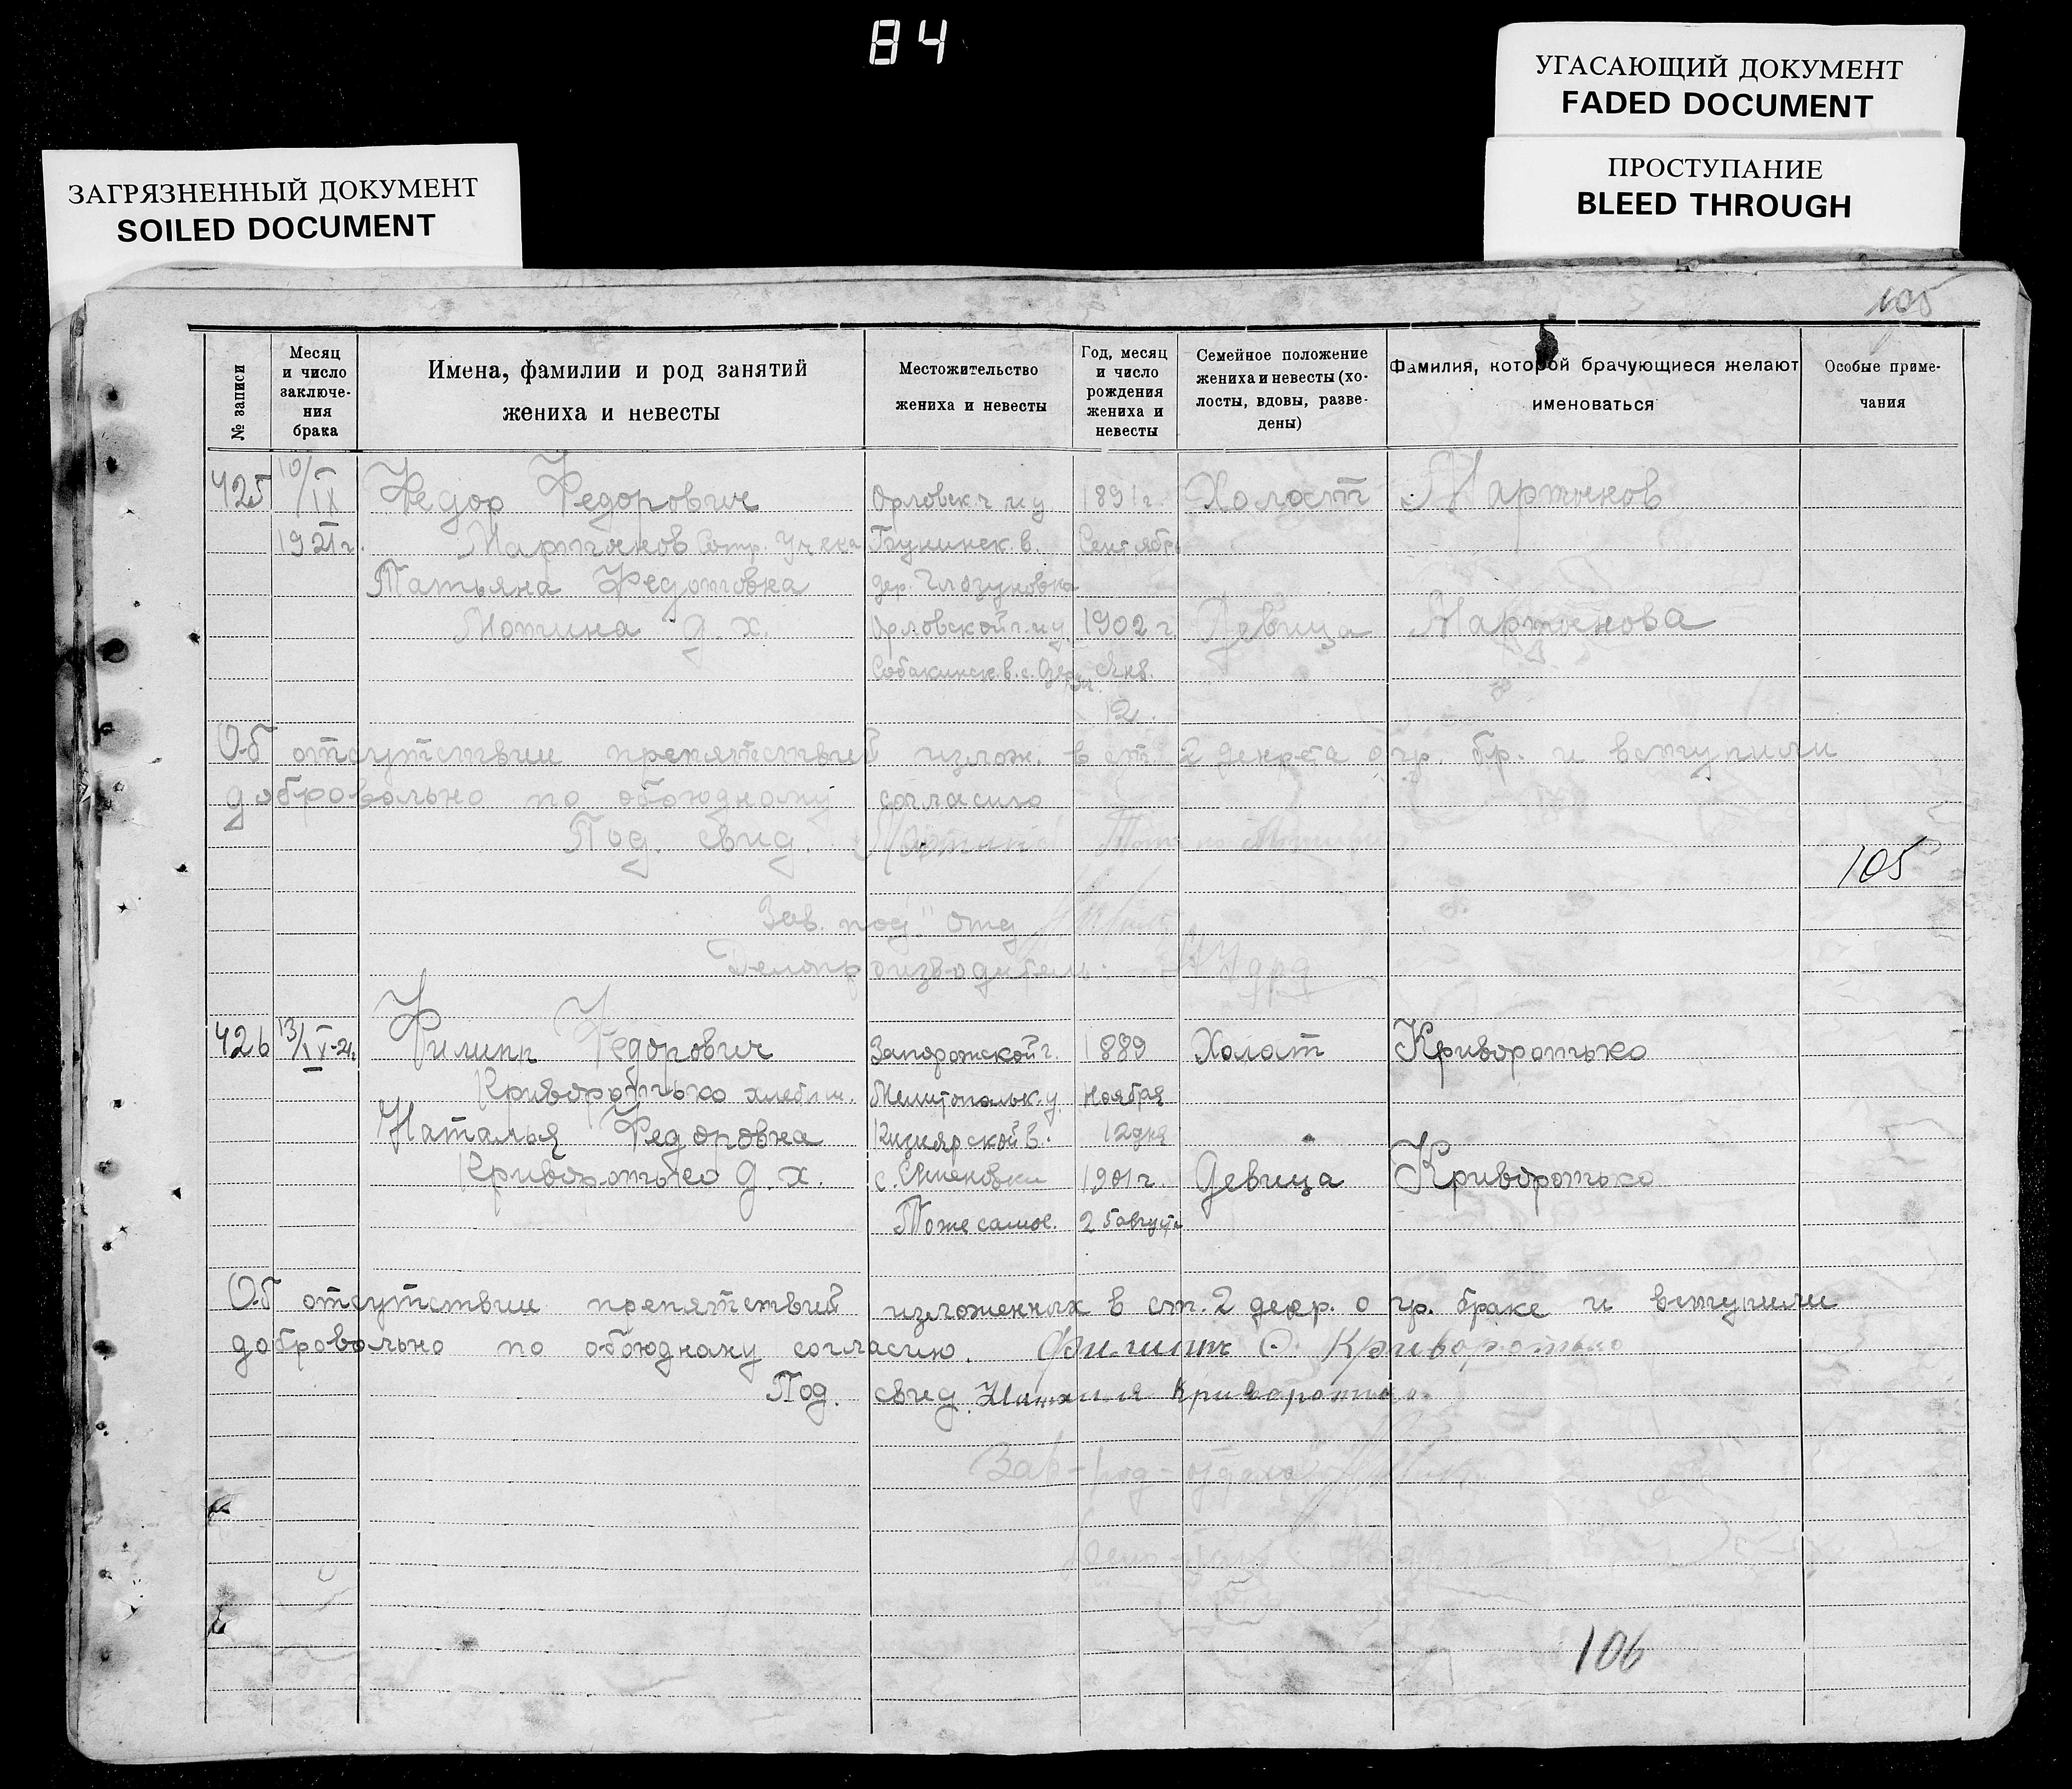 84
УГАСАЮЩИЙ ДОКУМЕНТ
FADED DOCUMENT
ПРОСТУПАНИЕ
BLEED THROUGH
ЗАГРЯЗНЕННЫЙ ДОКУМЕНТ
SOILED DOCUMENT
105
№ записи
Месяц и число заключе-ния брака
Имена, фамилии и род занятий жениха и невесты
Местожительство жениха и невесты
Год, месяц и число рождения жениха и невесты
Семейное положение жениха и невесты (хо-лосты, вдовы, разве-дены)
Фамилия, которой брачующиеся желают именоваться
Особые приме-чания
425 10/IX Федор Федорович Орловск. г. и у 1891 г. Холост Мартынов
1921 г. Мартынов Сотр. Учека в. Сентябрь
Татьяна Федотовна дер. Глазуновка
Мотина д. х. Орловской г. и у. 1902 г. Девица Мартынова
Собакинск. в. с. Янв.
12.
Об отсутствии препятствий излож. в ст. 2 декрета о гр. бр. и вступили
добровольно по обоюдному согласию
Под. свид.
105
Зав. под. отд
Делопроизводитель.
426 13/IX-21г. Филипп Федорович Запорожской г. 1889 Холост Криворотько
Криворотько хлебоп. Мелитопольск. у. Ноября
Наталья Федоровна Кизиярской в. 12 дня
Криворотько д. х. с. 1901 г. Девица Криворотько
Тоже самое. 25 августа
Об отсутствии препятствий изложенных в ст. 2 декр. о гр. браке и вступили
добровольно по обоюдному согласию. Филипп Ф. Криворотько
Под. свид. Наталия Криворотько
Зав-под-отдела
106